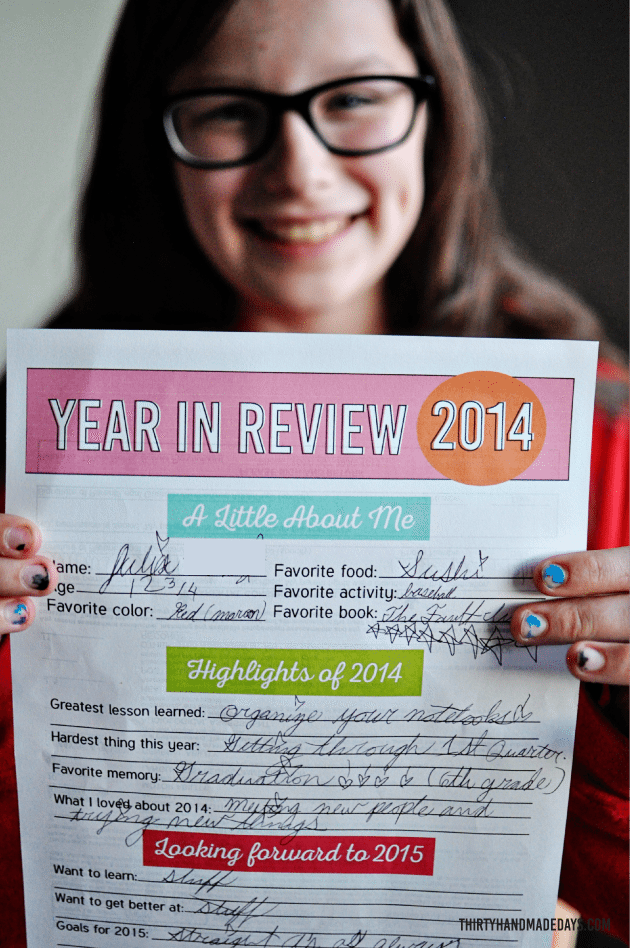 YEAR IN REVIEW 2014
A Little About Me
ame: Julia Favorite food: Sushi
ge 12 3/4 Favorite activity: baseball
Favorite color: Red (maroon) Favorite book: The Fault
Highlights of 2014
Greatest lesson learned: Organize your notebooks
Hardest thing this year: Getting through 1st Quarter.
Favorite memory: Graduation (6th grade)
What I loved about 2014: meeting new people and
trying new things
Looking forward to 2015
Want to learn: Stuff
Want to get better at: Stuff
Goals for 2015: Straight A's all
THIRTYHANDMADEDAYS.COM